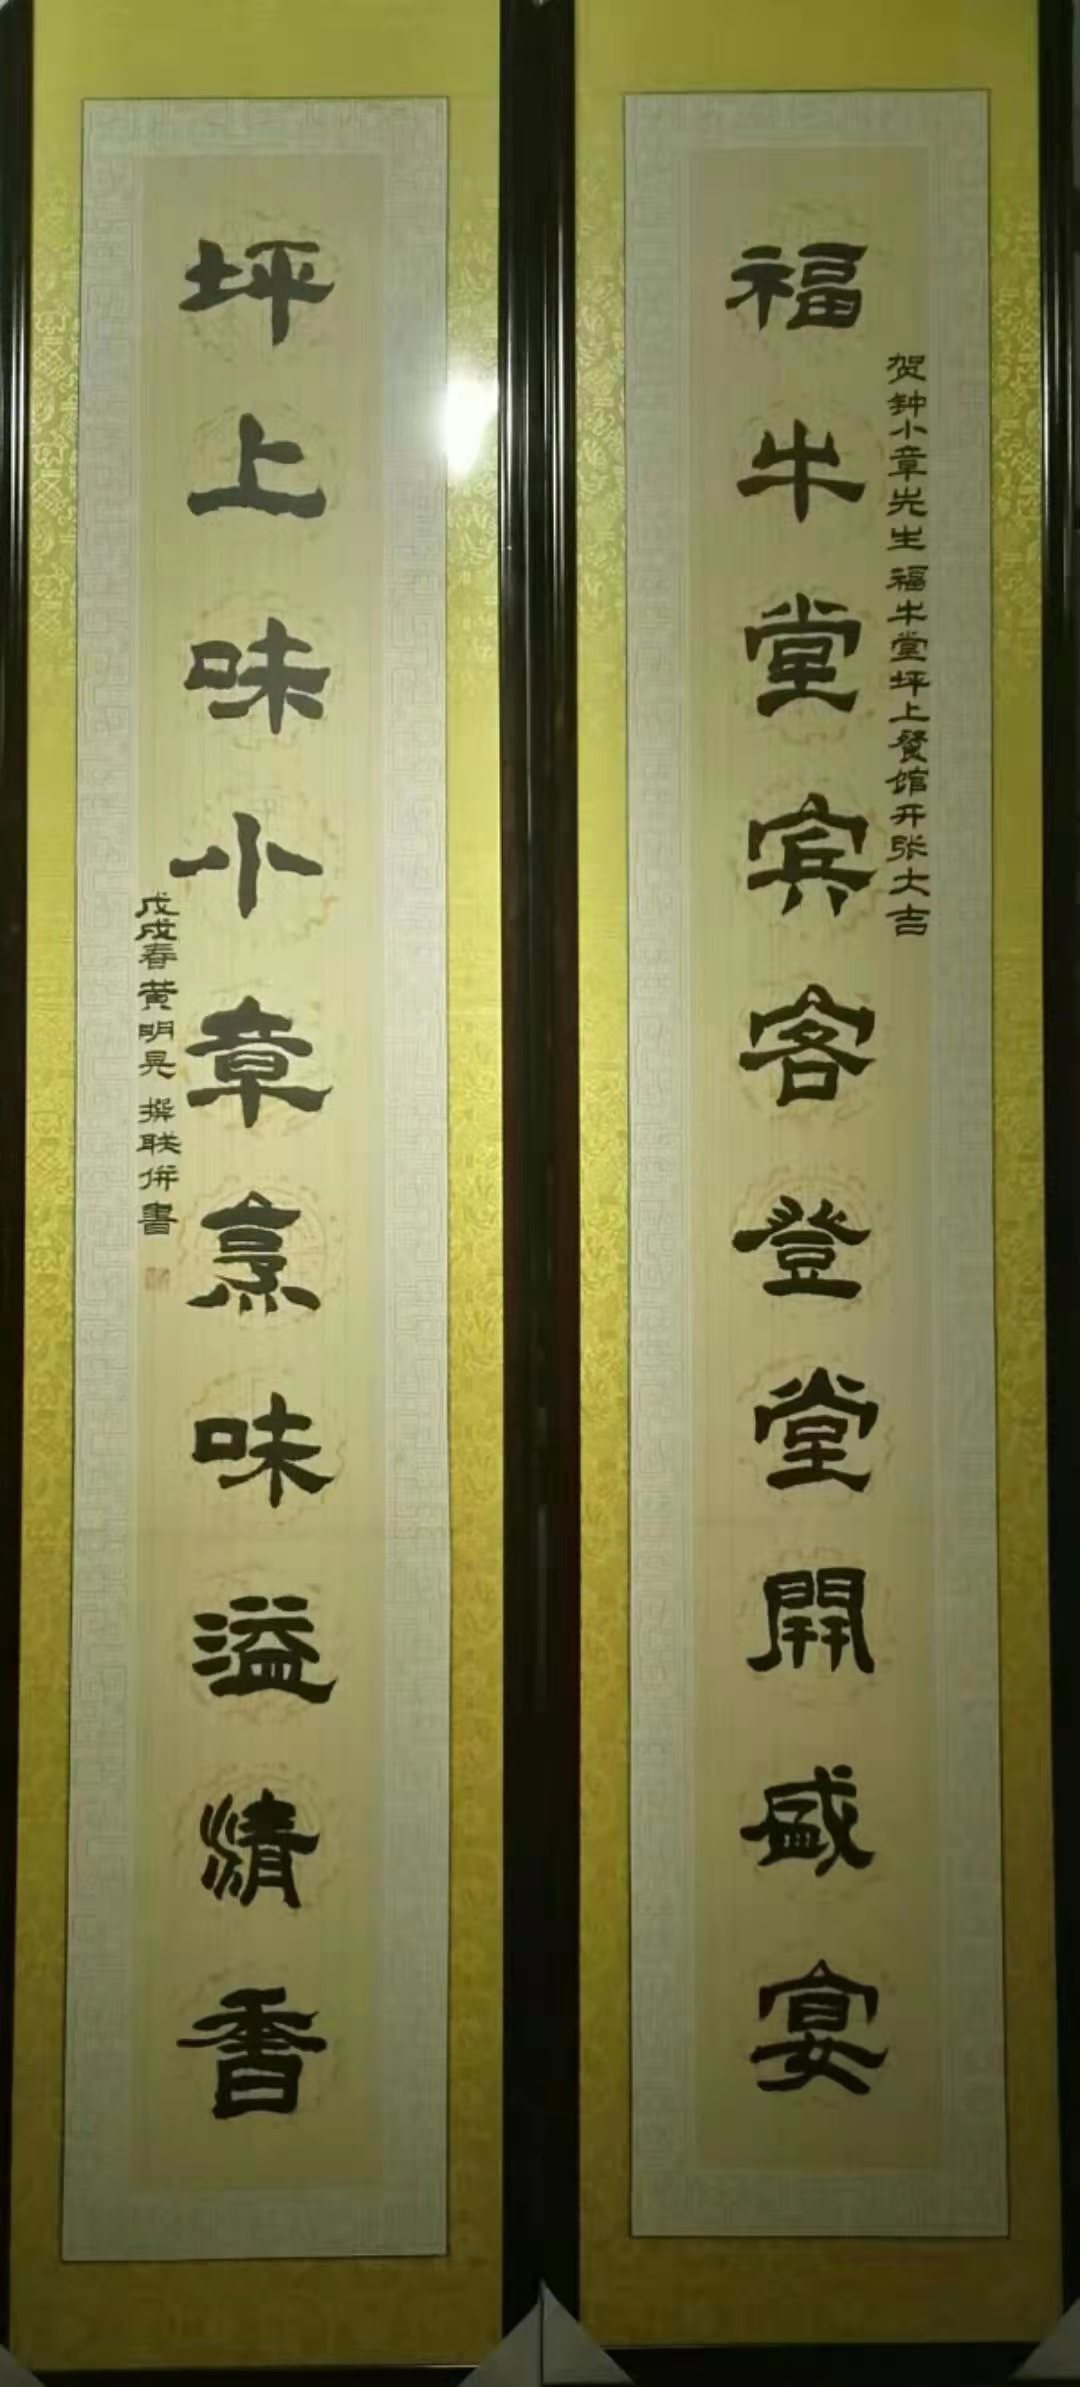 贺钟小章先生福牛堂坪上餐馆开张大吉
福牛堂宾客登堂開盛宴
坪上味小章烹味溢情香
戊戌春黄明晃撰联併書